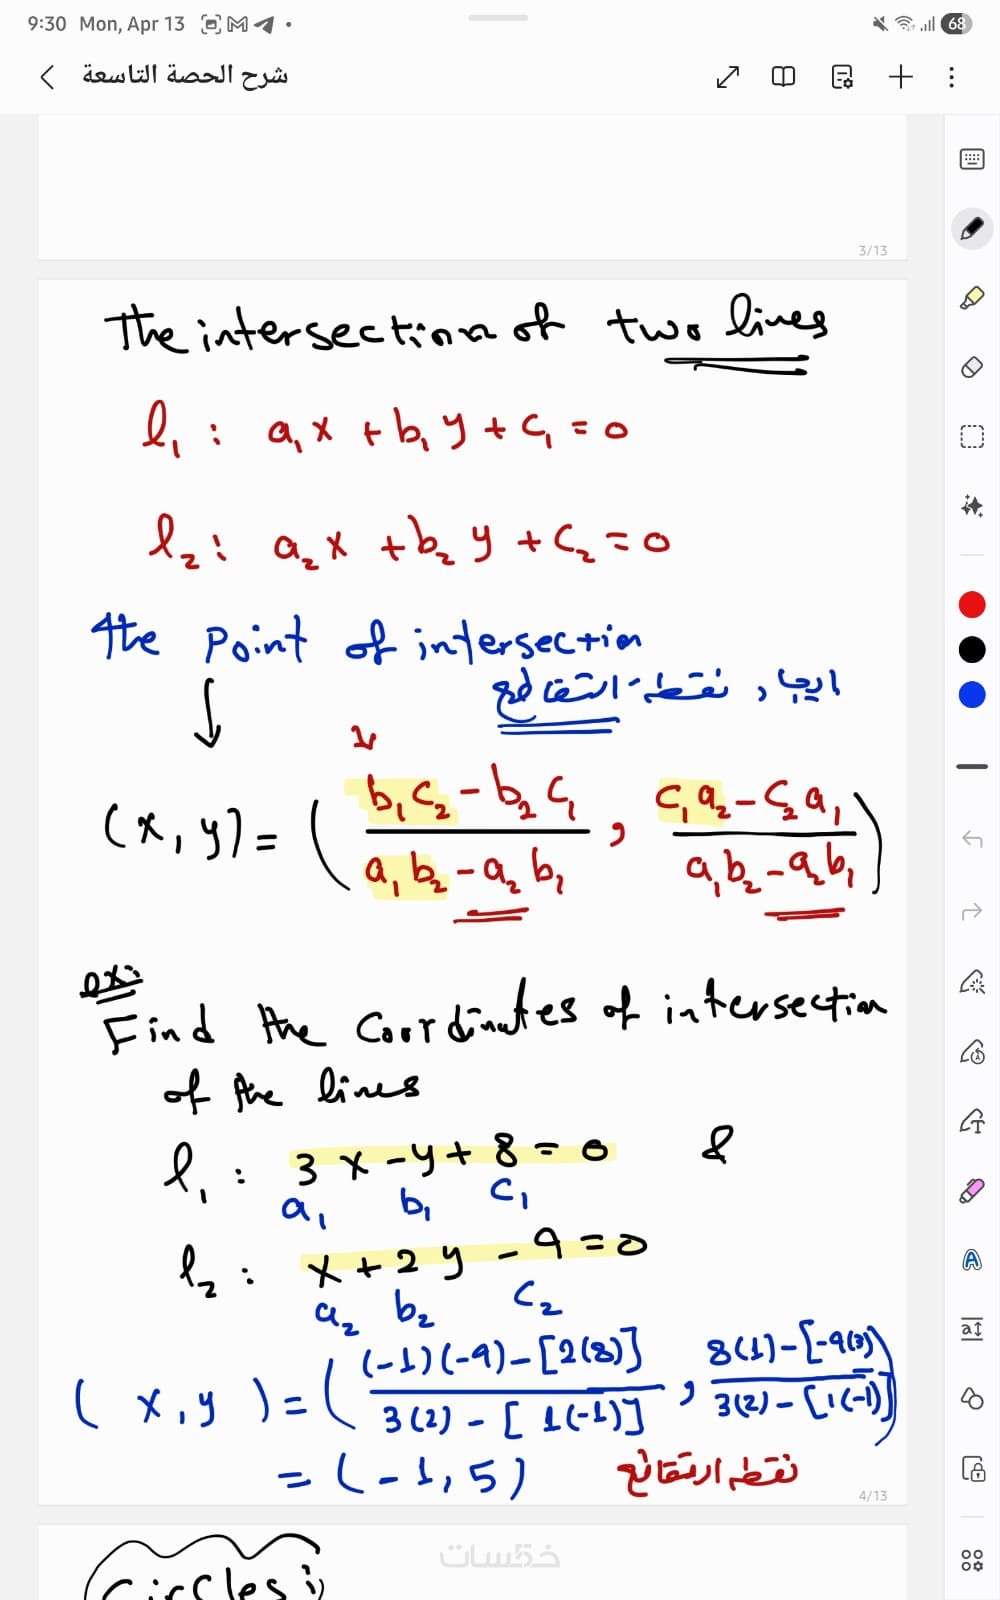 9:30 Mon, Apr 13
68
شرح الحصة التاسعة
3/13
The intersection of two lines
l₁ : a₁x + b₁y + c₁ = 0
l₂ : a₂x + b₂y + c₂ = 0
the Point of intersection
ايجاد نقطة التقاطع
(x, y) = ( (b₁c₂ - b₂c₁)/(a₁b₂ - a₂b₁) , (c₁a₂ - c₂a₁)/(a₁b₂ - a₂b₁) )
ex:
Find the coordinates of intersection
of the lines
l₁ : 3x - y + 8 = 0 &
a₁ b₁ c₁
l₂ : x + 2y - 9 = 0
a₂ b₂ c₂
(x, y) = ( ((-1)(-9) - [2(8)])/(3(2) - [1(-1)]) , (8(1) - [-9(3)])/(3(2) - [1(-1)]) )
= (-1, 5) نقطة التقاطع
4/13
خمسات
Circles: